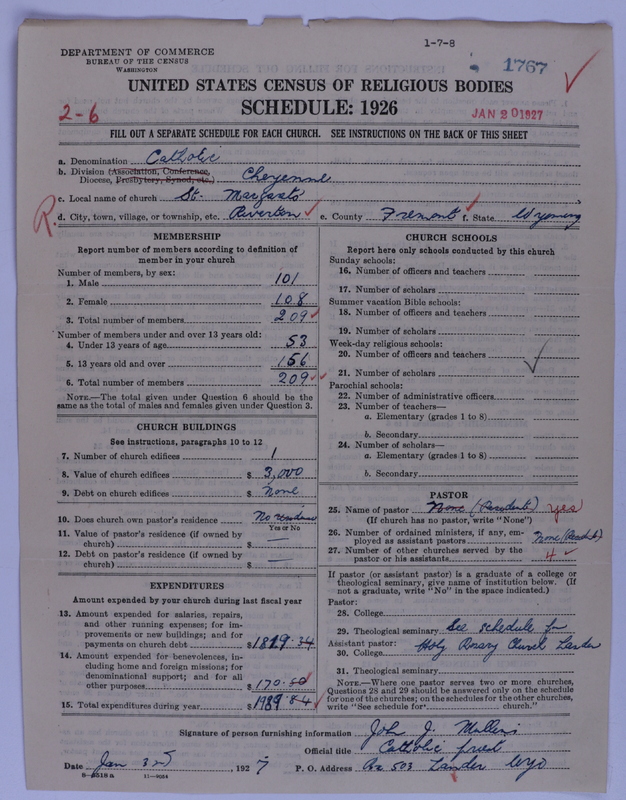 1-7-8
DEPARTMENT OF COMMERCE
BUREAU OF THE CENSUS
WASHINGTON
1767
UNITED STATES CENSUS OF RELIGIOUS BODIES
2-6
SCHEDULE: 1926
JAN 20 1927
FILL OUT A SEPARATE SCHEDULE FOR EACH CHURCH. SEE INSTRUCTIONS ON THE BACK OF THIS SHEET
a. Denomination Catholic
b. Division (Association, Conference, Diocese, Presbytery, Synod, etc.) Cheyenne
c. Local name of church St. Margarets
R. d. City, town, village, or township, etc. Riverton e. County Fremont f. State Wyoming
MEMBERSHIP
Report number of members according to definition of member in your church
Number of members, by sex:
1. Male 101
2. Female 108
3. Total number of members 209
Number of members under and over 13 years old:
4. Under 13 years of age 53
5. 13 years old and over 156
6. Total number of members 209
NOTE.—The total given under Question 6 should be same as the total of males and females given under Question 3.
CHURCH BUILDINGS
See instructions, paragraphs 10 to 12
7. Number of church edifices 1
8. Value of church edifices $ 3,000
9. Debt on church edifices $ None
10. Does church own pastor's residence No residence
Yes or No
11. Value of pastor's residence (if owned by church) $ —
12. Debt on pastor's residence (if owned by church) $ —
EXPENDITURES
Amount expended by your church during last fiscal year
13. Amount expended for salaries, repairs, and other running expenses; for improvements or new buildings; and for payments on church debt $ 1819.34
14. Amount expended for benevolences, including home and foreign missions; for denominational support; and for all other purposes $ 170.50
15. Total expenditures during year $ 1989.84
CHURCH SCHOOLS
Report here only schools conducted by this church
Sunday schools:
16. Number of officers and teachers
17. Number of scholars
Summer vacation Bible schools:
18. Number of officers and teachers
19. Number of scholars
Week-day religious schools:
20. Number of officers and teachers
21. Number of scholars
Parochial schools:
22. Number of administrative officers
23. Number of teachers—
a. Elementary (grades 1 to 8)
b. Secondary
24. Number of scholars—
a. Elementary (grades 1 to 8)
b. Secondary
PASTOR
25. Name of pastor None (Resident) yes
(If church has no pastor, write "None")
26. Number of ordained ministers, if any, employed as assistant pastors None (Resident)
27. Number of other churches served by the pastor or his assistants 4
If pastor (or assistant pastor) is a graduate of a college or theological seminary, give name of institution below. (If not a graduate, write "No" in the space indicated.)
Pastor:
28. College
29. Theological seminary See schedule for
Assistant pastor: Holy Rosary Church Lander
30. College
31. Theological seminary
NOTE.—Where one pastor serves two or more churches, Questions 28 and 29 should be answered only on the schedule for one of the churches; on the schedules for the other churches, write "See schedule for church."
Signature of person furnishing information John J. Mullins
Official title Catholic priest
Date Jan 3rd, 1927 P. O. Address Box 503 Lander Wyo
8-5518 a 11-9054